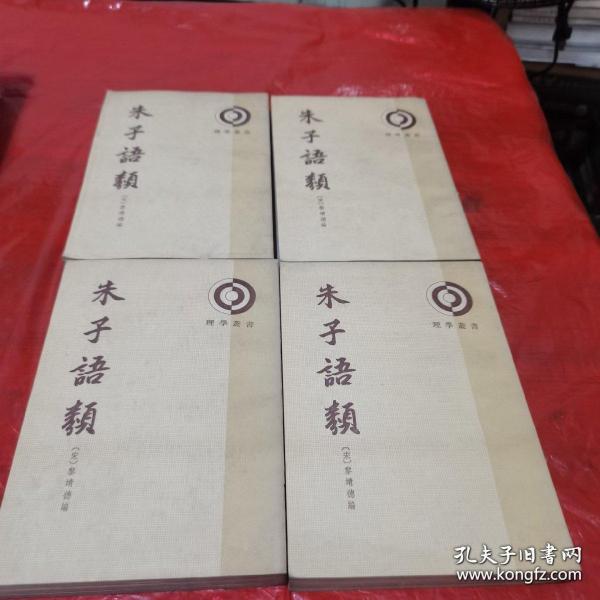 朱子語類
〔宋〕黎靖德編
理學叢書
朱子語類
〔宋〕黎靖德編
理學叢書
朱子語類
〔宋〕黎靖德編
理學叢書
朱子語類
〔宋〕黎靖德編
理學叢書
孔夫子旧书网
www.kongfz.com